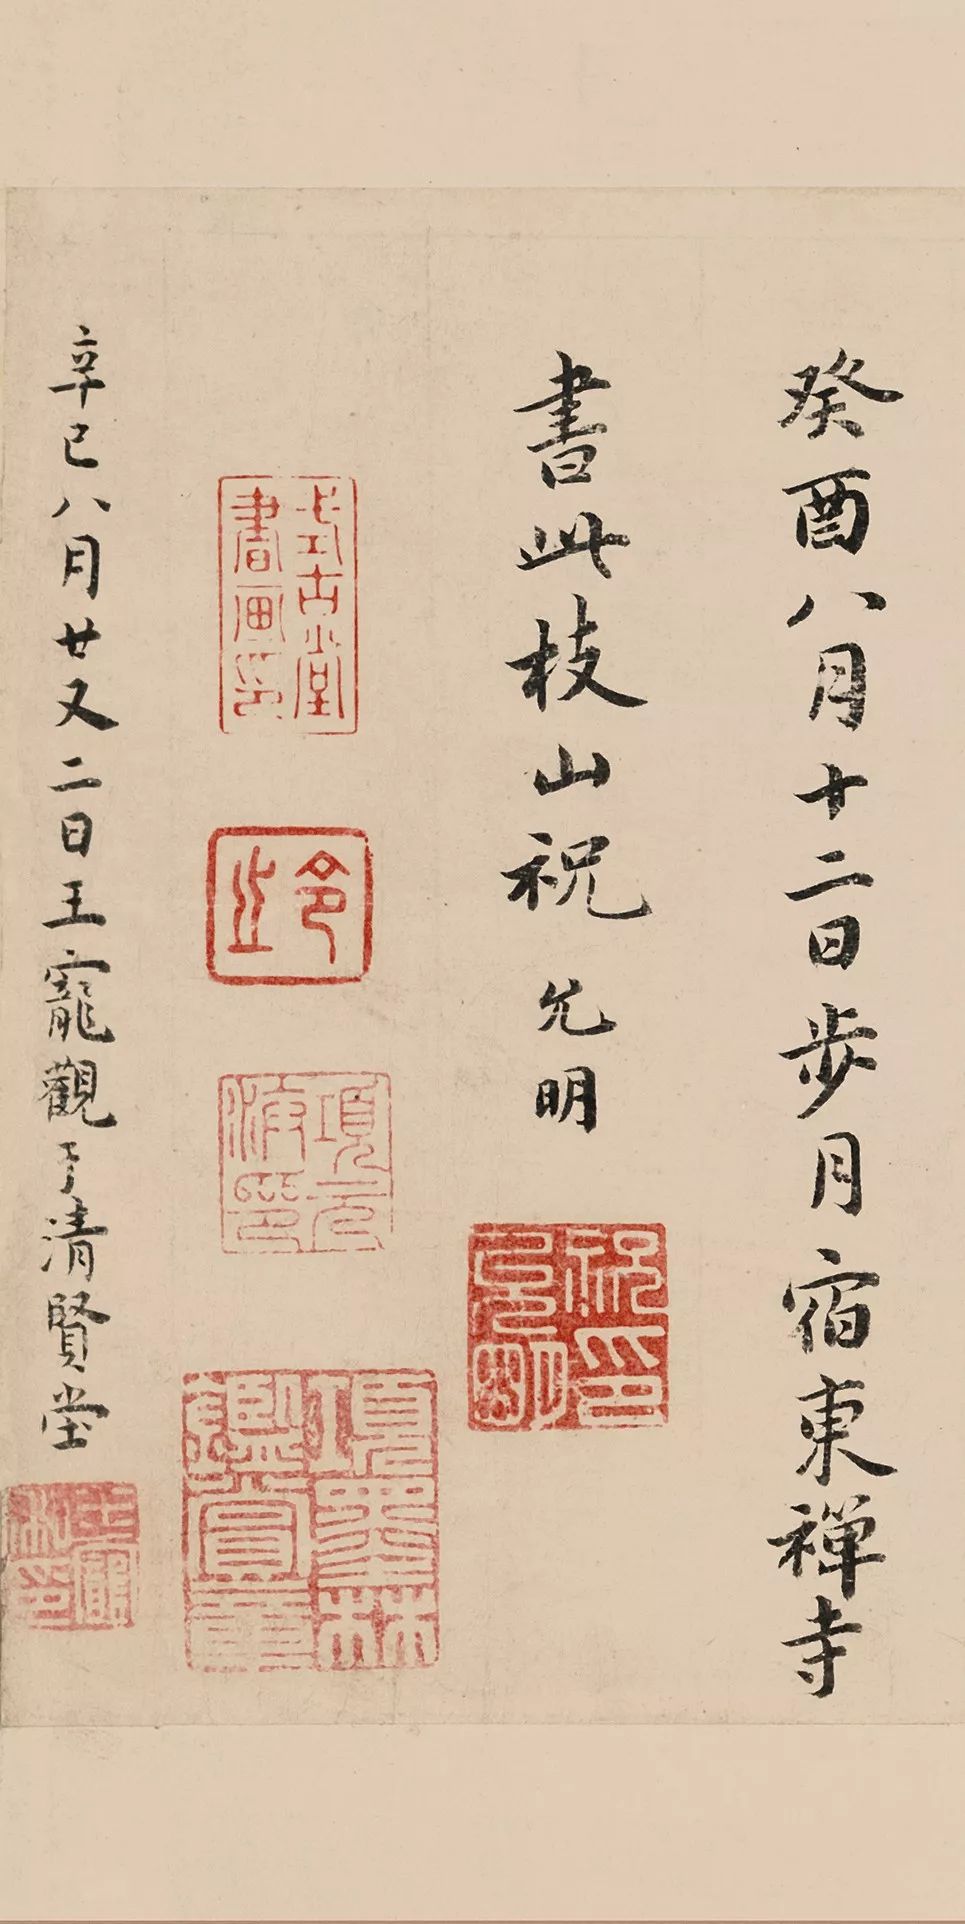 癸酉八月十二日步月宿東禪寺
書此枝山祝允明
祝允明印
式古堂書畫印
令之
項元汴印
項墨林鑑賞章
辛巳八月廿又二日王寵觀于清賢堂